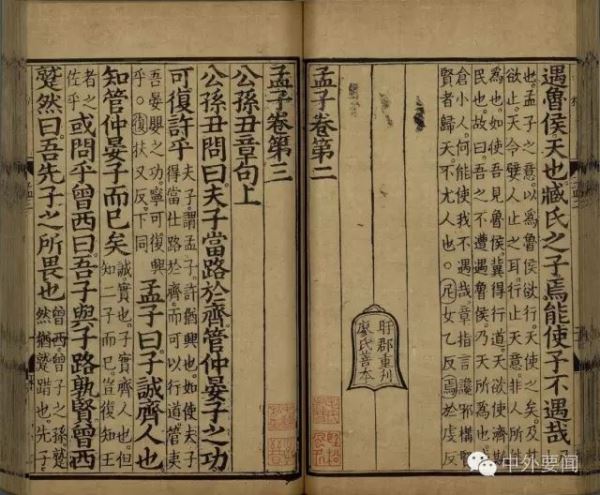 遇魯侯天也臧氏之子焉能使予不遇哉
也。孟子之意。以為魯侯欲行。天使之矣。及
欲止。天令嬖人止之耳。行止天意。非人所
為也。如使吾見魯侯冀得行道。天欲使濟斯
民也。故曰。吾之不遭遇魯侯。乃天所為也。
倉小人。何能使我不遇哉。章指言讒邪構
賢者歸天。不尤人也。尼女乙反焉於虔反
盱郡重刊
廖氏善本
孟子卷第二
孟子卷第三
公孫丑章句上
公孫丑問曰夫子當路於齊管仲晏子之功
可復許乎夫子。謂孟子。許猶興也。如使夫子得當仕路於齊。而可以行道。管夷
吾晏嬰之功。寧可復興乎。復扶又反。下同孟子曰子誠齊人也
知管仲晏子而已矣誠實也。子實齊人也。但知二子而已。豈復知王
者之佐乎或問乎曾西曰吾子與子路孰賢曾西
蹵然曰吾先子之所畏也曾西曾子之孫蹵然猶蹵踖也。先子
中外要闻